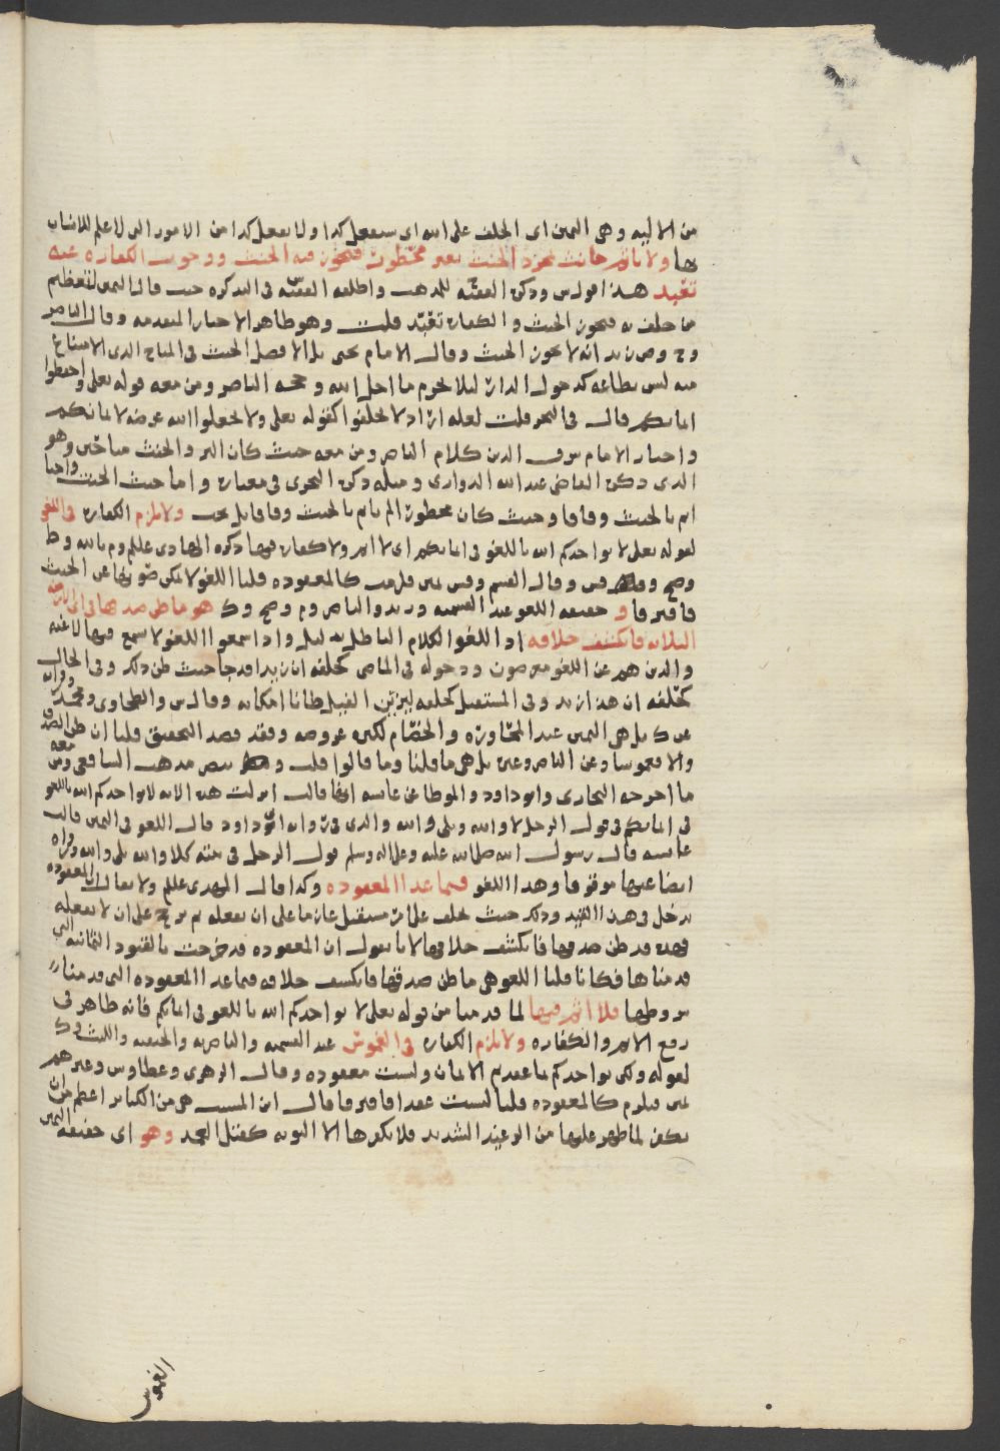 من الالية وهى اليمين اى الحلف على الله اى سيفعل كذا ولا يفعل كذا من الامور التى لا علم للانسان
بها ولا ياثم حانث بمجرد الحنث بغير محظور فيجوز فيه الحنث ووجوب الكفارة عنه
تعبد هذا وذكره الفقيه للمذهب واطلقه الفقيه فى التذكرة حيث قال اليمين لتعظيم
ما حلف به فيجوز الحنث والكفارة تعبد قلت وهو ظاهر الاخبار المتقدمة وقال الناصر
انه لا يجوز الحنث وقال الامام يحيى بل الافضل الحنث فى المباح الذى الامتناع
منه ليس بطاعة كدخول الدار لئلا يحرم ما احل الله وحجة الناصر ومن معه قوله تعالى واحفظوا
ايمانكم قال فى البحر قلت لعله اراد لا تحلفوا كقوله تعالى ولا تجعلوا الله عرضة لايمانكم
واختار الامام شرف الدين كلام الناصر ومن معه حيث كان البر والحنث مباحين وهو
الذى ذكره القاضى عبد الله الدوارى ومثله ذكره النجرى فى معياره واما حيث الحنث واجبا
اثم بالحنث وفاقا وحيث كان محظورا لم ياثم بالحنث وفاقا بل يجب ولا تلزم الكفارة فى اللغو
لقوله تعالى لا يواخذكم الله باللغو فى ايمانكم اى لا اثم ولا كفارة فيها ذكره الهادى عللم وم بالله وط
وقال القسم يمين فلزمت كالمعقودة قلنا اللغو لا يمكن صونها عن الحنث
فافترقا و حقيقة اللغو عند القسمية وزيد والناصر وم هو ما ظن صدقها فى اى الازمنة
الثلاثة فانكشف خلافه اذ اللغو الكلام الباطل بدليل واذا سمعوا اللغو لا تسمع فيها لاغية
والذين هم عن اللغو معرضون ودخوله فى الماضى كحلفه ان زيدا قد جا حيث ظن ذلك وفى الحال
كحلفه ان هذا زيد وفى المستقبل كحلفه ليزنين الفيل ظانا امكانه وقال والطحاوى ومحمد
بل هى اليمين عند المحاورة والخصام لكثرة عروضه وفقد قصد التحقيق قلنا ان ظن الصدق
والا فغموسا وعن الناصر وغيره بل هى ما قلنا وما قالوا قلت مذهب الشافعى ومن معه
ما اخرجه البخارى وابو داود والموطا عن عايشة ايضا قالت انزلت هذه الاية لا يواخذكم الله باللغو
فى ايمانكم فى قول الرجل لا والله وبلى والله والذى فى رواية ابو داود قال اللغو فى اليمين قالت
عايشة قال رسول الله صلى الله عليه وعلى اله وسلم قول الرجل فى بيته كلا والله بلى والله ورواه
ايضا عنها موقوفا وهذا اللغو فيما عدا المعقودة وكذا قال المهدى علللم ولا يقال ان المعقودة
تدخل فى هذا القيد وذلك حيث يحلف على امر مستقبل عازما على ان يفعله ثم على ان لا يفعله
فهذه قد ظن صدقها فانكشف خلافها لانا نقول ان المعقودة قد خرجت بالقيود الثمانية التى
قدمناها فكانا قلنا اللغو هى ما ظن صدقها فانكشف خلافه فيما عدا المعقودة التى قدمنا
شروطها فلا اثم فيها لما قدمنا من قوله تعالى لا يواخذكم الله باللغو فى ايمانكم فانه ظاهر فى
رفع الاثم والكفارة ولا تلزم الكفارة فى الغموس عند القسمية والناصرية والحنفية والليث وك
لقوله ولكن يواخذكم بما عقدتم الايمان وليست معقودة وقال الزهرى وعطا وس وغيرهم
يمين فيلزم كالمعقودة قلنا ليست عقدا فافترقا قال ابن المسيب هى من الكبائر اعظم من ان
تكفر لما ظهر عليها من الوعيد الشديد فلا يكفرها الا التوبة كقتل العمد وهو اى حقيقة اليمين
الغموس